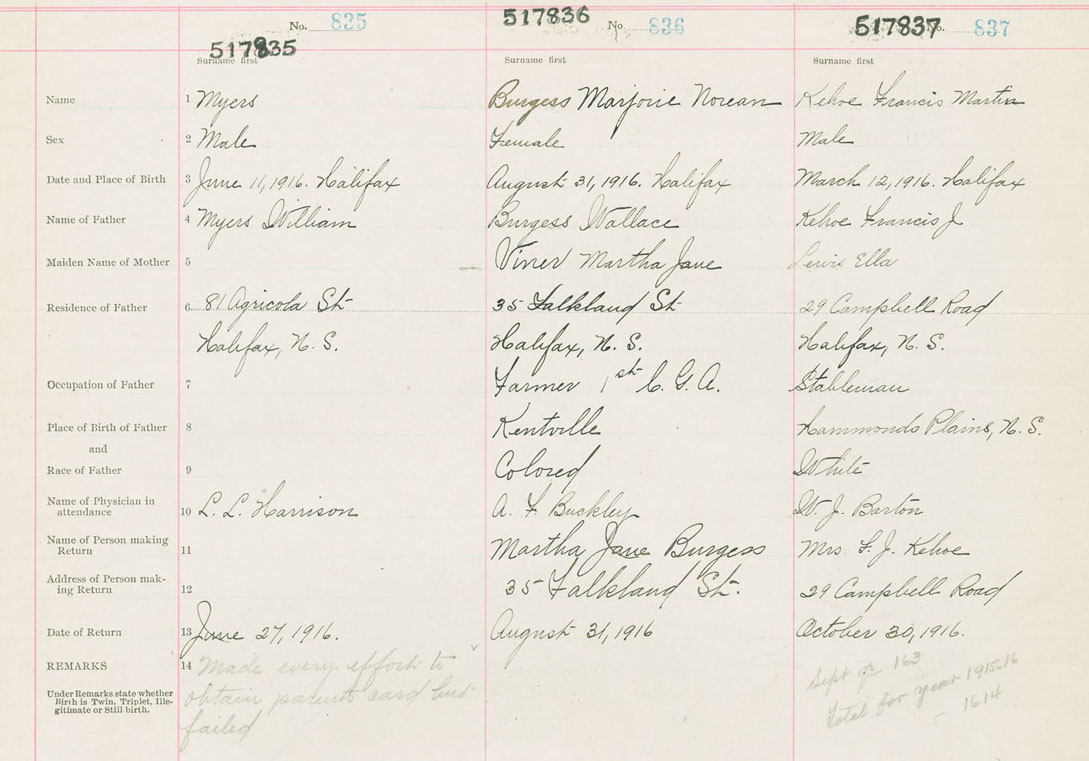 No. 835
517835
Surname first
517836
No. 836
Surname first
517837
No. 837
Surname first
Name 1 Myers Burgess Marjorie Norean Kehoe Francis Martin
Sex 2 Male Female Male
Date and Place of Birth 3 June 11, 1916. Halifax August 31, 1916. Halifax March 12, 1916. Halifax
Name of Father 4 Myers William Burgess Wallace Kehoe Francis J
Maiden Name of Mother 5 Viner Martha Jane Lewis Ella
Residence of Father 6 81 Agricola St 35 Falkland St 29 Campbell Road
Halifax, N. S. Halifax, N. S. Halifax, N. S.
Occupation of Father 7 Farmer 1st C. G. A. Stableman
Place of Birth of Father 8 Kentville Hammonds Plains, N. S.
and
Race of Father 9 Colored White
Name of Physician in
attendance 10 L. L. Harrison A. F. Buckley W. J. Barton
Name of Person making
Return 11 Martha Jane Burgess Mrs F. J. Kehoe
Address of Person mak-
ing Return 12 35 Falkland St. 29 Campbell Road
Date of Return 13 June 27, 1916. August 31, 1916 October 30, 1916.
REMARKS 14
Under Remarks state whether
Birth is Twin, Triplet, Ille-
gitimate or Still birth.
Made every effort to
obtain parents card but
failed
Sept 163
Total for year 1915-16
- 1614